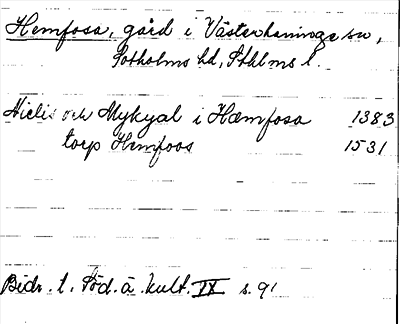 Hemfosa, gård i Västerhaninge sn,
Sotholms hd, Sthlms l.
Nielis och Mykyal i Hæmfosa 1383
torp Hemfoos 1531
Bidr. t. Söd. ä. kult. IX s. 91